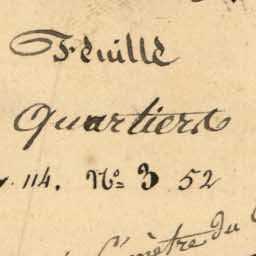 Feuille
Quartiers
114. No 3 52
du